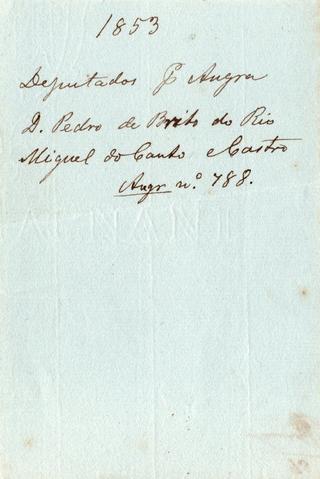 1853
Deputados p Angra
D. Pedro de Brito do Rio
Miguel do Canto e Castro
Angr nº 788.